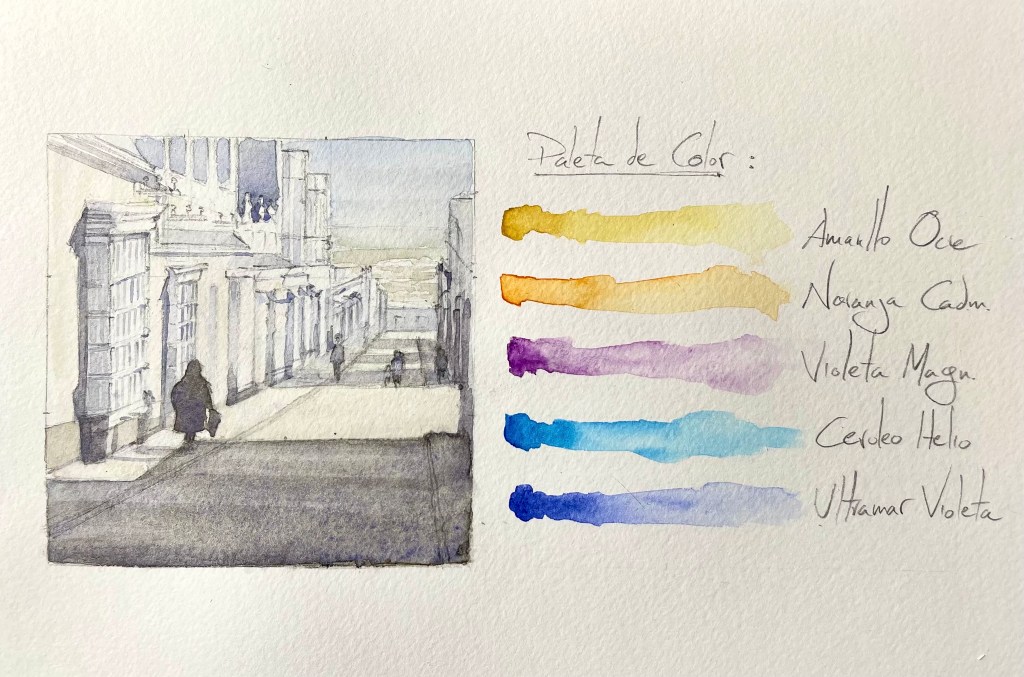 Paleta de Color :
Amarillo Ocre
Naranja Cadm.
Violeta Magn.
Ceroleo Helio
Ultramar Violeta